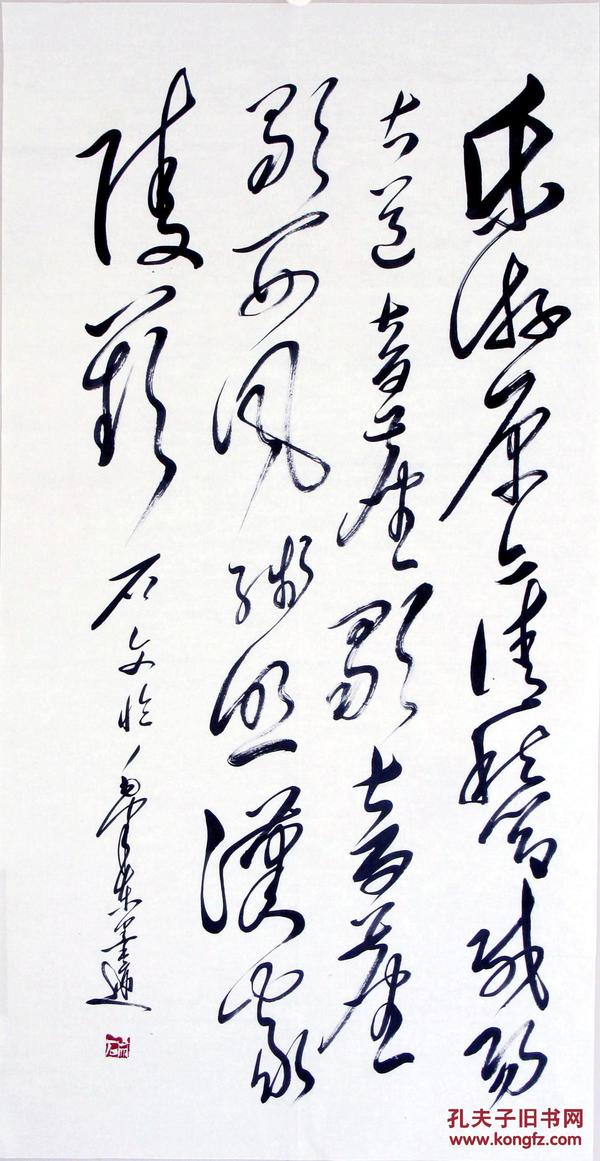 乐游原上清秋节咸阳
古道音尘歇音尘
歇西风残照漢家
陵阙
石文临毛泽东墨迹
孔夫子旧书网
www.kongfz.com